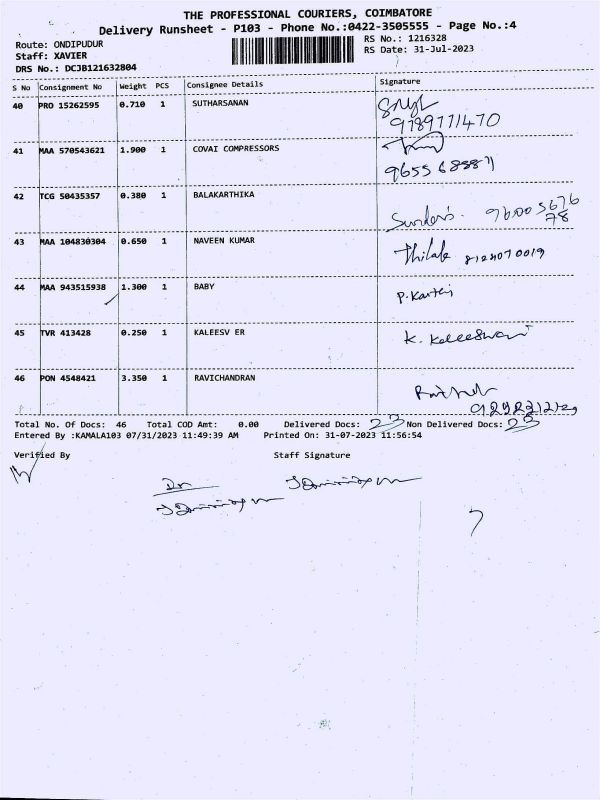 THE PROFESSIONAL COURIERS, COIMBATORE
Delivery Runsheet - P103 - Phone No.:0422-3505555 - Page No.:4
Route: ONDIPUDUR
RS No.: 1216328
Staff: XAVIER
RS Date: 31-Jul-2023
DRS No.: DCJB121632804
S No Consignment No Weight PCS Consignee Details Signature
40 PRO 15262595 0.710 1 SUTHARSANAN
9789711470
41 MAA 570543621 1.900 1 COVAI COMPRESSORS
42 TCG 50435357 0.380 1 BALAKARTHIKA
43 MAA 104830304 0.650 1 NAVEEN KUMAR Thilak
44 MAA 943515938 1.300 1 BABY P. Karthi
45 TVR 413428 0.250 1 KALEESV ER K. Kaleeswari
46 PON 4548421 3.350 1 RAVICHANDRAN
Total No. Of Docs: 46 Total COD Amt: 0.00 Delivered Docs: 23 Non Delivered Docs: 23
Entered By :KAMALA103 07/31/2023 11:49:39 AM Printed On: 31-07-2023 11:56:54
Verified By Staff Signature